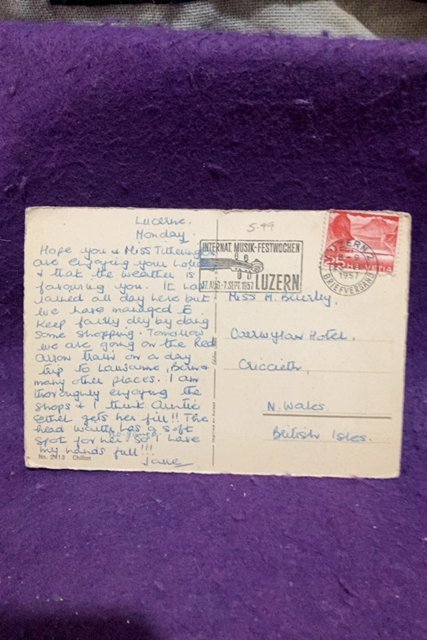 Lucerne.
Monday.
Hope you & Miss Titterington
are enjoying your
& that the weather is
favouring you. It has
rained all day here but
we have managed to
keep fairly dry by doing
some shopping. Tomorrow
we are going on the Red
Arrow train on a day
trip to Lausanne, Bern &
many other places. I am
thoroughly enjoying the
shops & I think Auntie
Ethel gets her fill!! The
head waiter has a soft
spot for her so I have
my hands full!!!
Jane
No. 2913 Chillon
5.99
INTERNAT. MUSIK-FESTWOCHEN
LUZERN
7.SEPT.1957
LUZERN 2
1957
BRIEFVERSAND
Miss M. Brierley,
Caerwylan Hotel,
Criccieth,
N. Wales
British Isles.